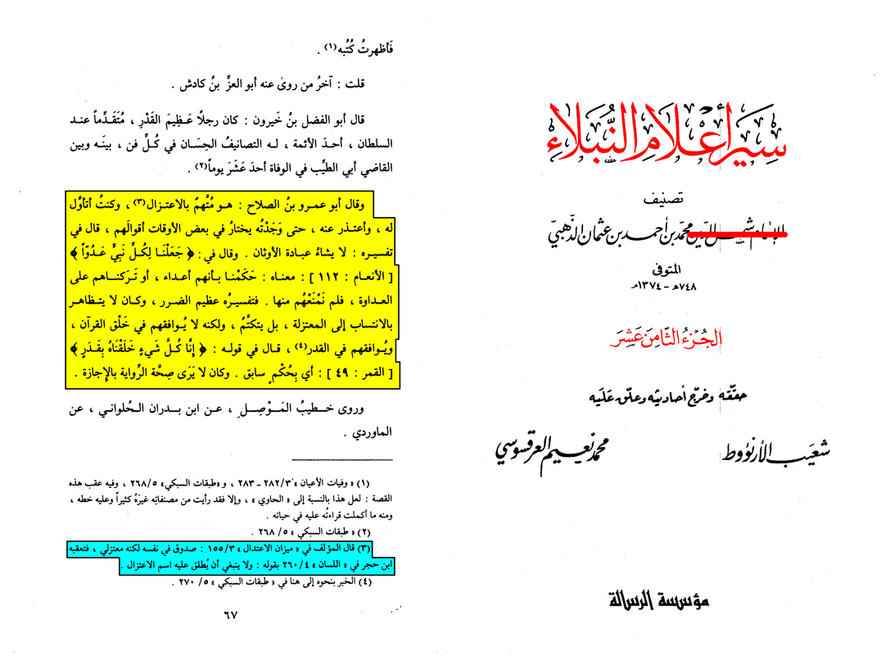 سِيَر أَعْلَامِ النُّبَلَاءِ
تصنيف
محمّد بن أحمد بن عثمان الذّهبيّ
المتوفى
٧٤٨هـ - ١٣٧٤م
الجُزءُ الثَّامِنَ عَشَرَ
حقّقه وخرّج أحاديثه وعلّق عَلَيه
شعَيب الأرنؤوط
محمّد نعيم العرقسوسي
مؤسسة الرسالة
فَأظهرتُ كُتُبه(١) .
قلت : آخرُ من روىٰ عنه أبو العزِّ بنُ كادش .
قال أبو الفضل بنُ خَيرون : كان رجلًا عَظِيمَ القَدْرِ ، مُتَقَدِّماً عند
السلطان ، أحدَ الأئمة ، لـه التصانيفُ الحِسَان في كُلِّ فن ، بينَـه وبين
القاضي أبي الطيِّب في الوفاة أحدَ عَشَرَ يوماً(٢) .
وقال أبو عمـرو بنُ الصلاح : هـو مُتَّهمٌ بالاعتـزال(٣) ، وكنتُ أتأوَّل
له ، وأعتـذر عنه ، حتى وَجَدْتُه يختارُ في بعض الأوقات أقوالَهم ، قال في
تفسيـره : لا يشاءُ عبادة الأوثان . وقال في : ﴿ جَعَلْنَا لِكُلِّ نَبِيٍّ عَدُوّاً ﴾
[ الأنعـام : ١١٢ ] : معنـاه : حَكَمْنـا بـأنهم أعـداء ، أو تَـركنـاهـم على
العداوة ، فلم نَمْنَعْهُم منها . فتفسيـرُه عظيم الضـرر ، وكـان لا يتـظاهـر
بالانتساب إلى المعتزلة ، بل يتكتَّمُ ، ولكنه لا يُـوافقهم في خَلْق القرآن ،
ويُـوافقهم في القدر(٤) ، قـال في قولـه : ﴿ إِنَّا كُـلَّ شَيءٍ خَلَقْنَاهُ بِقَـدَرٍ ﴾
[ القمر : ٤٩ ] : أي بِحُكْمٍ سابق . وكان لا يَرَى صِحَّة الرِّواية بالإجازة .
وروى خـطيبُ المَـوْصِـل ، عـن ابن بـدران الـحُلواني ، عن
الماوردي .
(١) « وفيات الأعيان » ٢٨٢/٣ - ٢٨٣ ، و«طبقات السبكي» ٢٦٨/٥ ، وفيه عقب هذه
القصة : لعل هذا بالنسبة إلى « الحاوي » ، وإلا فقد رأيت من مصنفاته غيرَهُ كثيراً وعليه خطه ،
ومنه ما أكملت قراءتُه عليه في حياته .
(٢) « طبقات السبكي » ٢٦٨/٥ .
(٣) قال المؤلف في « ميزان الاعتدال » ١٥٥/٣ : صدوق في نفسه لكنه معتزلي ، فتعقبه
ابن حجر في « اللسان » ٢٦٠/٤ بقوله : ولا ينبغي أن يُطلق عليه اسم الاعتزال .
(٤) الخبر بنحوه إلى هنا في « طبقات السبكي » ٥/ ٢٧٠ .
٦٧